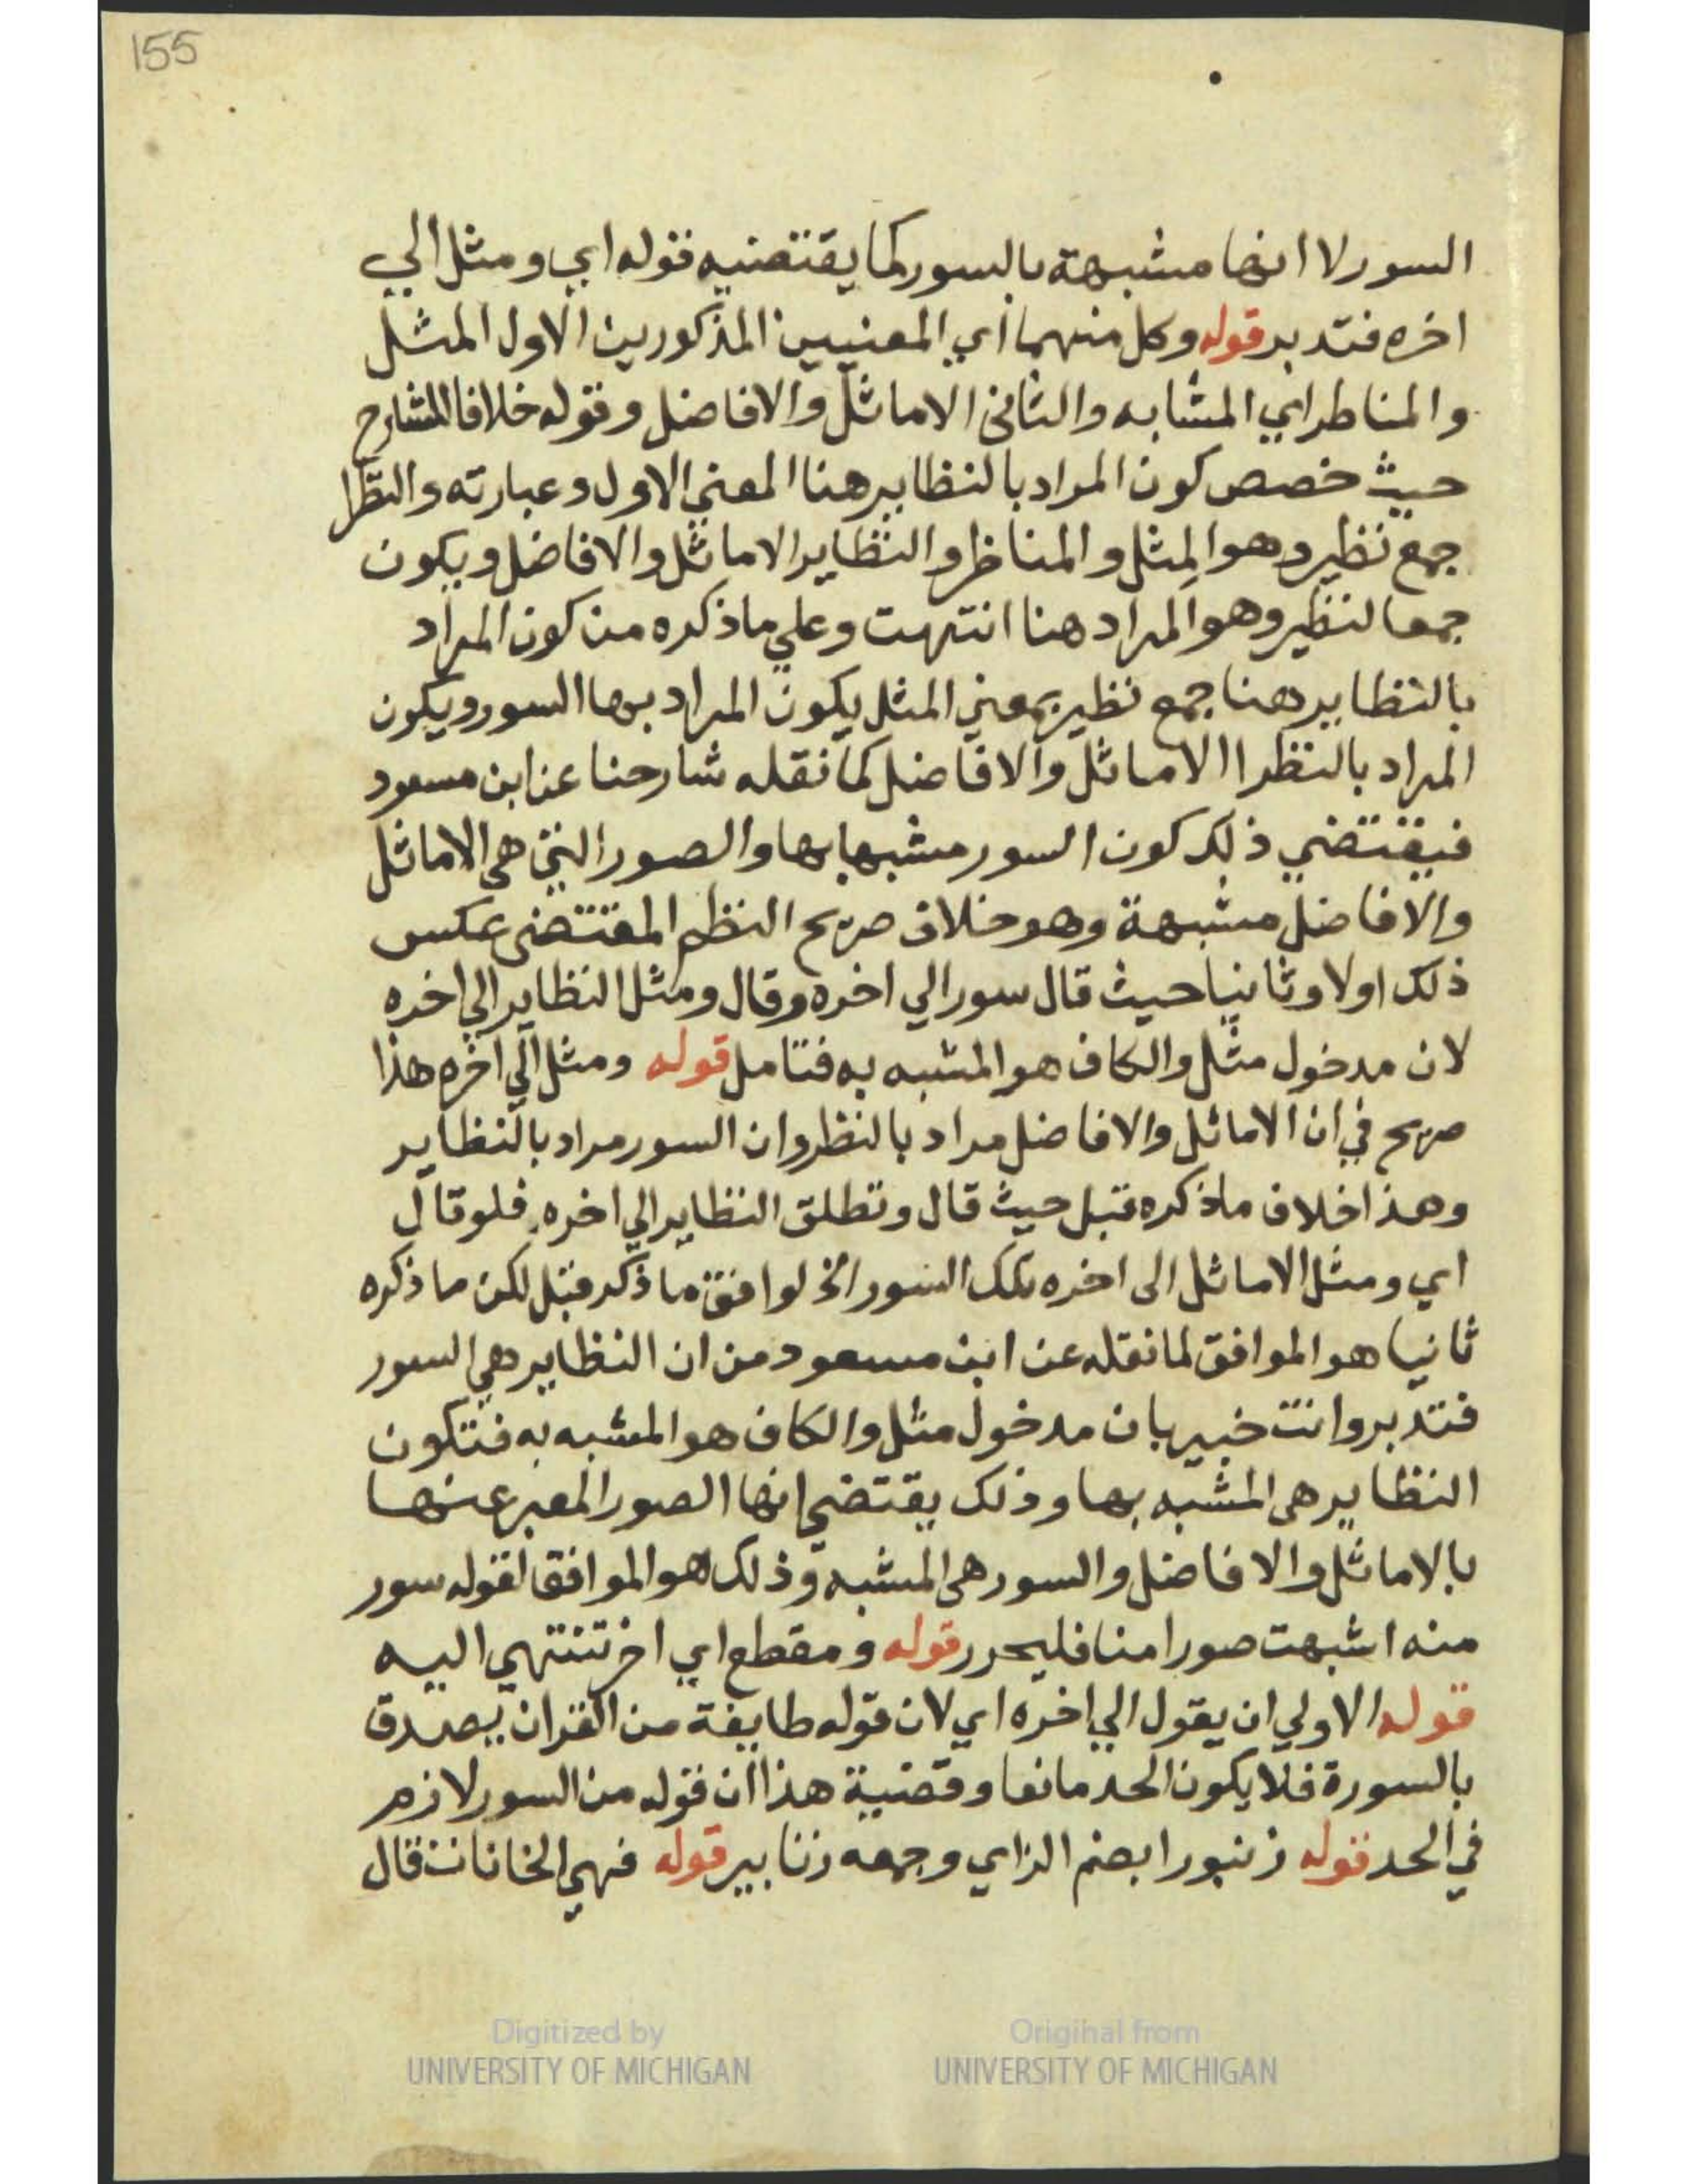 155
السور لا انها مشبهة بالسور كما يقتضيه قوله اي ومثل الي
اخره فتدبر قوله وكل منهما اي المعنيين المذكورين الاول المثل
والمناطر اي المشابه والثاني الاماثل والافاضل وقوله خلافا للشارح
حيث خصص كون المراد بالنظاير هنا المعني الاول وعبارته والنظرا
جمع نظير وهو المثل والمناظر والنظاير الاماثل والافاضل ويكون
جمعا لنظير وهو المراد هنا انتهت وعلي ما ذكره من كون المراد
بالنظاير هنا جمع نظير بمعني المثل يكون المراد بها السور ويكون
المراد بالنظرا الاماثل والافاضل كما نقله شارحنا عن ابن مسعود
فيقتضي ذلك كون السور مشبها بها والصور التي هي الاماثل
والافاضل مشبهة وهو خلاف صريح النظم المقتضي عكس
ذلك اولا وثانيا حيث قال سور الي اخره وقال ومثل النظاير الي اخره
لان مدخول مثل والكاف هو المشبه به فتامل قوله ومثل الي آخره هذا
صريح في ان الاماثل والافاضل مراد بالنظر وان السور مراد بالنظاير
وهذا خلاف ما ذكره قبل حيث قال وتطلق النظاير الي اخره فلو قال
اي ومثل الاماثل الى اخره تلك السور الخ لوافق ما ذكر قبل لكن ما ذكره
ثانيا هو الموافق لما نقله عن ابن مسعود من ان النظاير هي السور
فتدبر وانت خبير بان مدخول مثل والكاف هو المشبه به فتكون
النظاير هي المشبه بها وذلك يقتضي انها الصور المعبر عنها
بالاماثل والافاضل والسور هي المشبه وذلك هو الموافق لقوله سور
منه اشبهت صورا منا فليحرر قوله ومقطع اي اخر تنتهي اليه
قوله الاولي ان يقول الي اخره اي لان قوله طايفة من القران يصدق
بالسورة فلا يكون الحد مانعا وقضية هذا ان قوله من السور لازم
في الحد قوله زنبورا بضم الزاي وجمعه زنابير قوله فهي الخانات قال
Digitized by
UNIVERSITY OF MICHIGAN
Original from
UNIVERSITY OF MICHIGAN